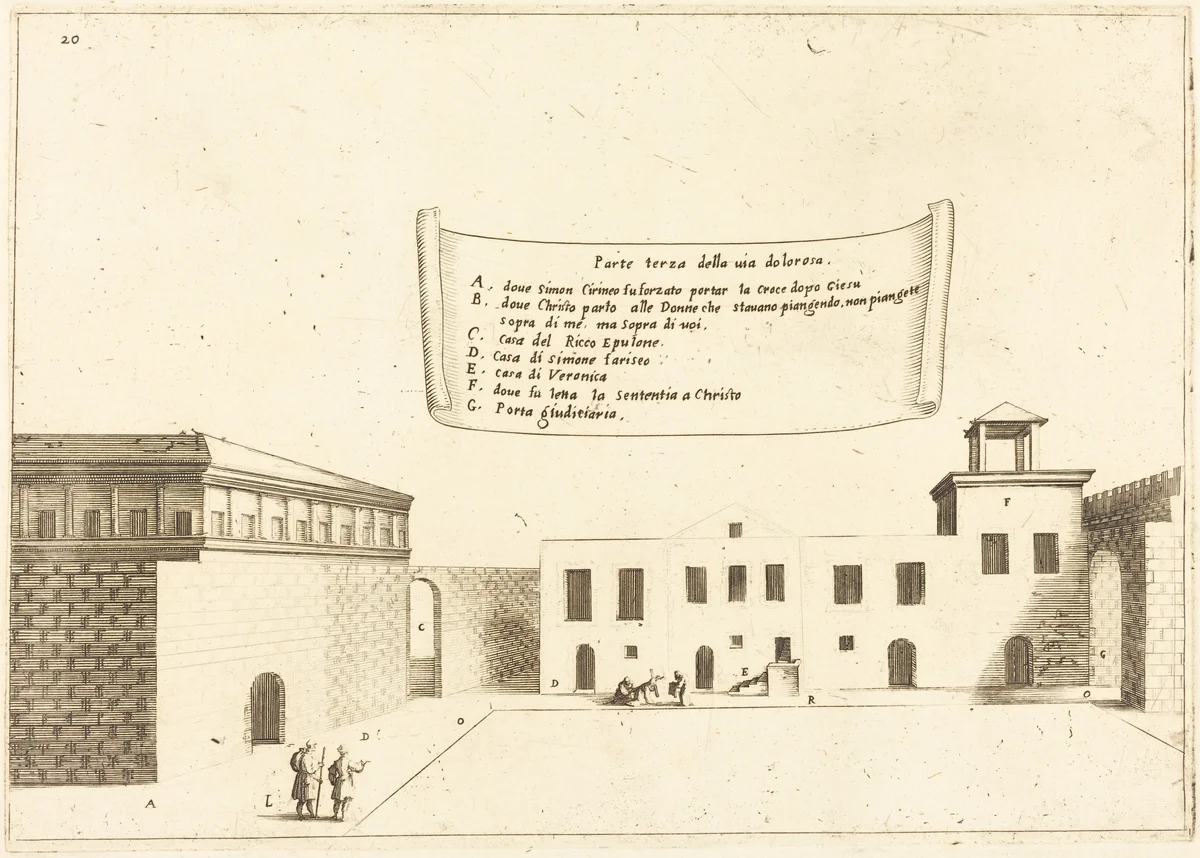 20
Parte terza della uia dolorosa.
A. doue Simon Cirineo fu forzato portar la Croce dopo Giesu
B. doue Christo parlo alle Donne che stauano piangendo, non piangete
sopra di me, ma sopra di uoi.
C. Casa del Ricco Epulone.
D. Casa di Simone fariseo
E. casa di Veronica
F. doue fu letta la sententia a Christo
G. Porta giuditiaria.
F
C
G
D
E
R
O
O
D
A
L